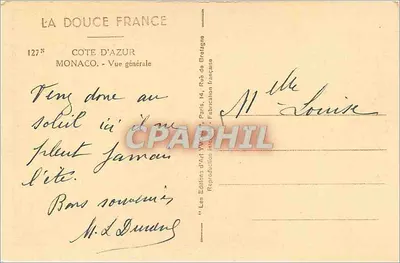 LA DOUCE FRANCE
127 COTE D'AZUR
MONACO. - Vue générale
Venez donc au
soleil ici il ne
pleut jamais
l'été.
Bons souvenirs
M. L. Durand
Mlle Louise
"Les Editions d'Art Paris, 14, Rue de Bretagne
Reproduction Fabrication française
CPAPHIL